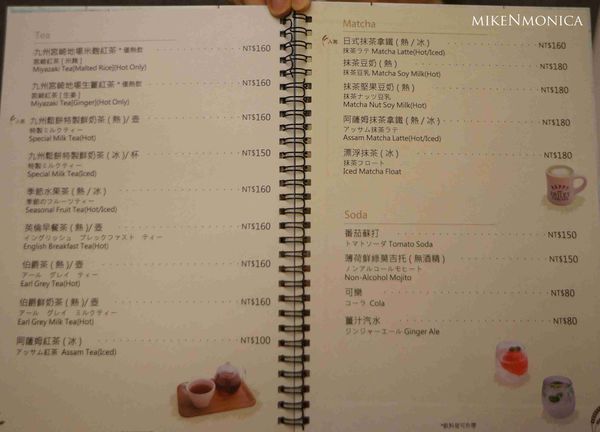 MIKENMONICA
Tea
九州宮崎地場米麴紅茶 *僅熱飲 NT$160
宮崎紅茶 [ 米麴 ]
Miyazaki Tea[Malted Rice](Hot Only)
九州宮崎地場生薑紅茶 *僅熱飲 NT$160
宮崎紅茶 [ 生姜 ]
Miyazaki Tea[Ginger](Hot Only)
人氣 九州鬆餅特製鮮奶茶 ( 熱 )/ 壺 NT$160
特製ミルクティー
Special Milk Tea(Hot)
九州鬆餅特製鮮奶茶 ( 冰 )/ 杯 NT$150
特製ミルクティー
Special Milk Tea(Iced)
季節水果茶 ( 熱 / 冰 ) NT$160
季節のフルーツティー
Seasonal Fruit Tea(Hot/Iced)
英倫早餐茶 ( 熱 )/ 壺 NT$160
イングリッシュ ブレックファスト ティー
English Breakfast Tea(Hot)
伯爵茶 ( 熱 )/ 壺 NT$160
アール グレイ ティー
Earl Grey Tea(Hot)
伯爵鮮奶茶 ( 熱 )/ 壺 NT$160
アール グレイ ミルクティー
Earl Grey Milk Tea(Hot)
阿薩姆紅茶 ( 冰 ) NT$100
アッサム紅茶 Assam Tea(Iced)
Matcha
人氣 日式抹茶拿鐵 ( 熱 / 冰 ) NT$160
抹茶ラテ Matcha Latte(Hot/Iced)
抹茶豆奶 ( 熱 ) NT$180
抹茶豆乳 Matcha Soy Milk(Hot)
抹茶堅果豆奶 ( 熱 ) NT$180
抹茶ナッツ豆乳
Matcha Nut Soy Milk(Hot)
阿薩姆抹茶拿鐵 ( 熱 / 冰 ) NT$180
アッサム抹茶ラテ
Assam Matcha Latte(Hot/Iced)
漂浮抹茶 ( 冰 ) NT$180
抹茶フロート
Iced Matcha Float
Soda
番茄蘇打 NT$150
トマトソーダ Tomato Soda
薄荷鮮綠莫吉托 ( 無酒精 ) NT$150
ノンアルコールモヒート
Non-Alcohol Mojito
可樂 NT$80
コーラ Cola
薑汁汽水 NT$80
ジンジャーエール Ginger Ale
*飲料皆可外帶